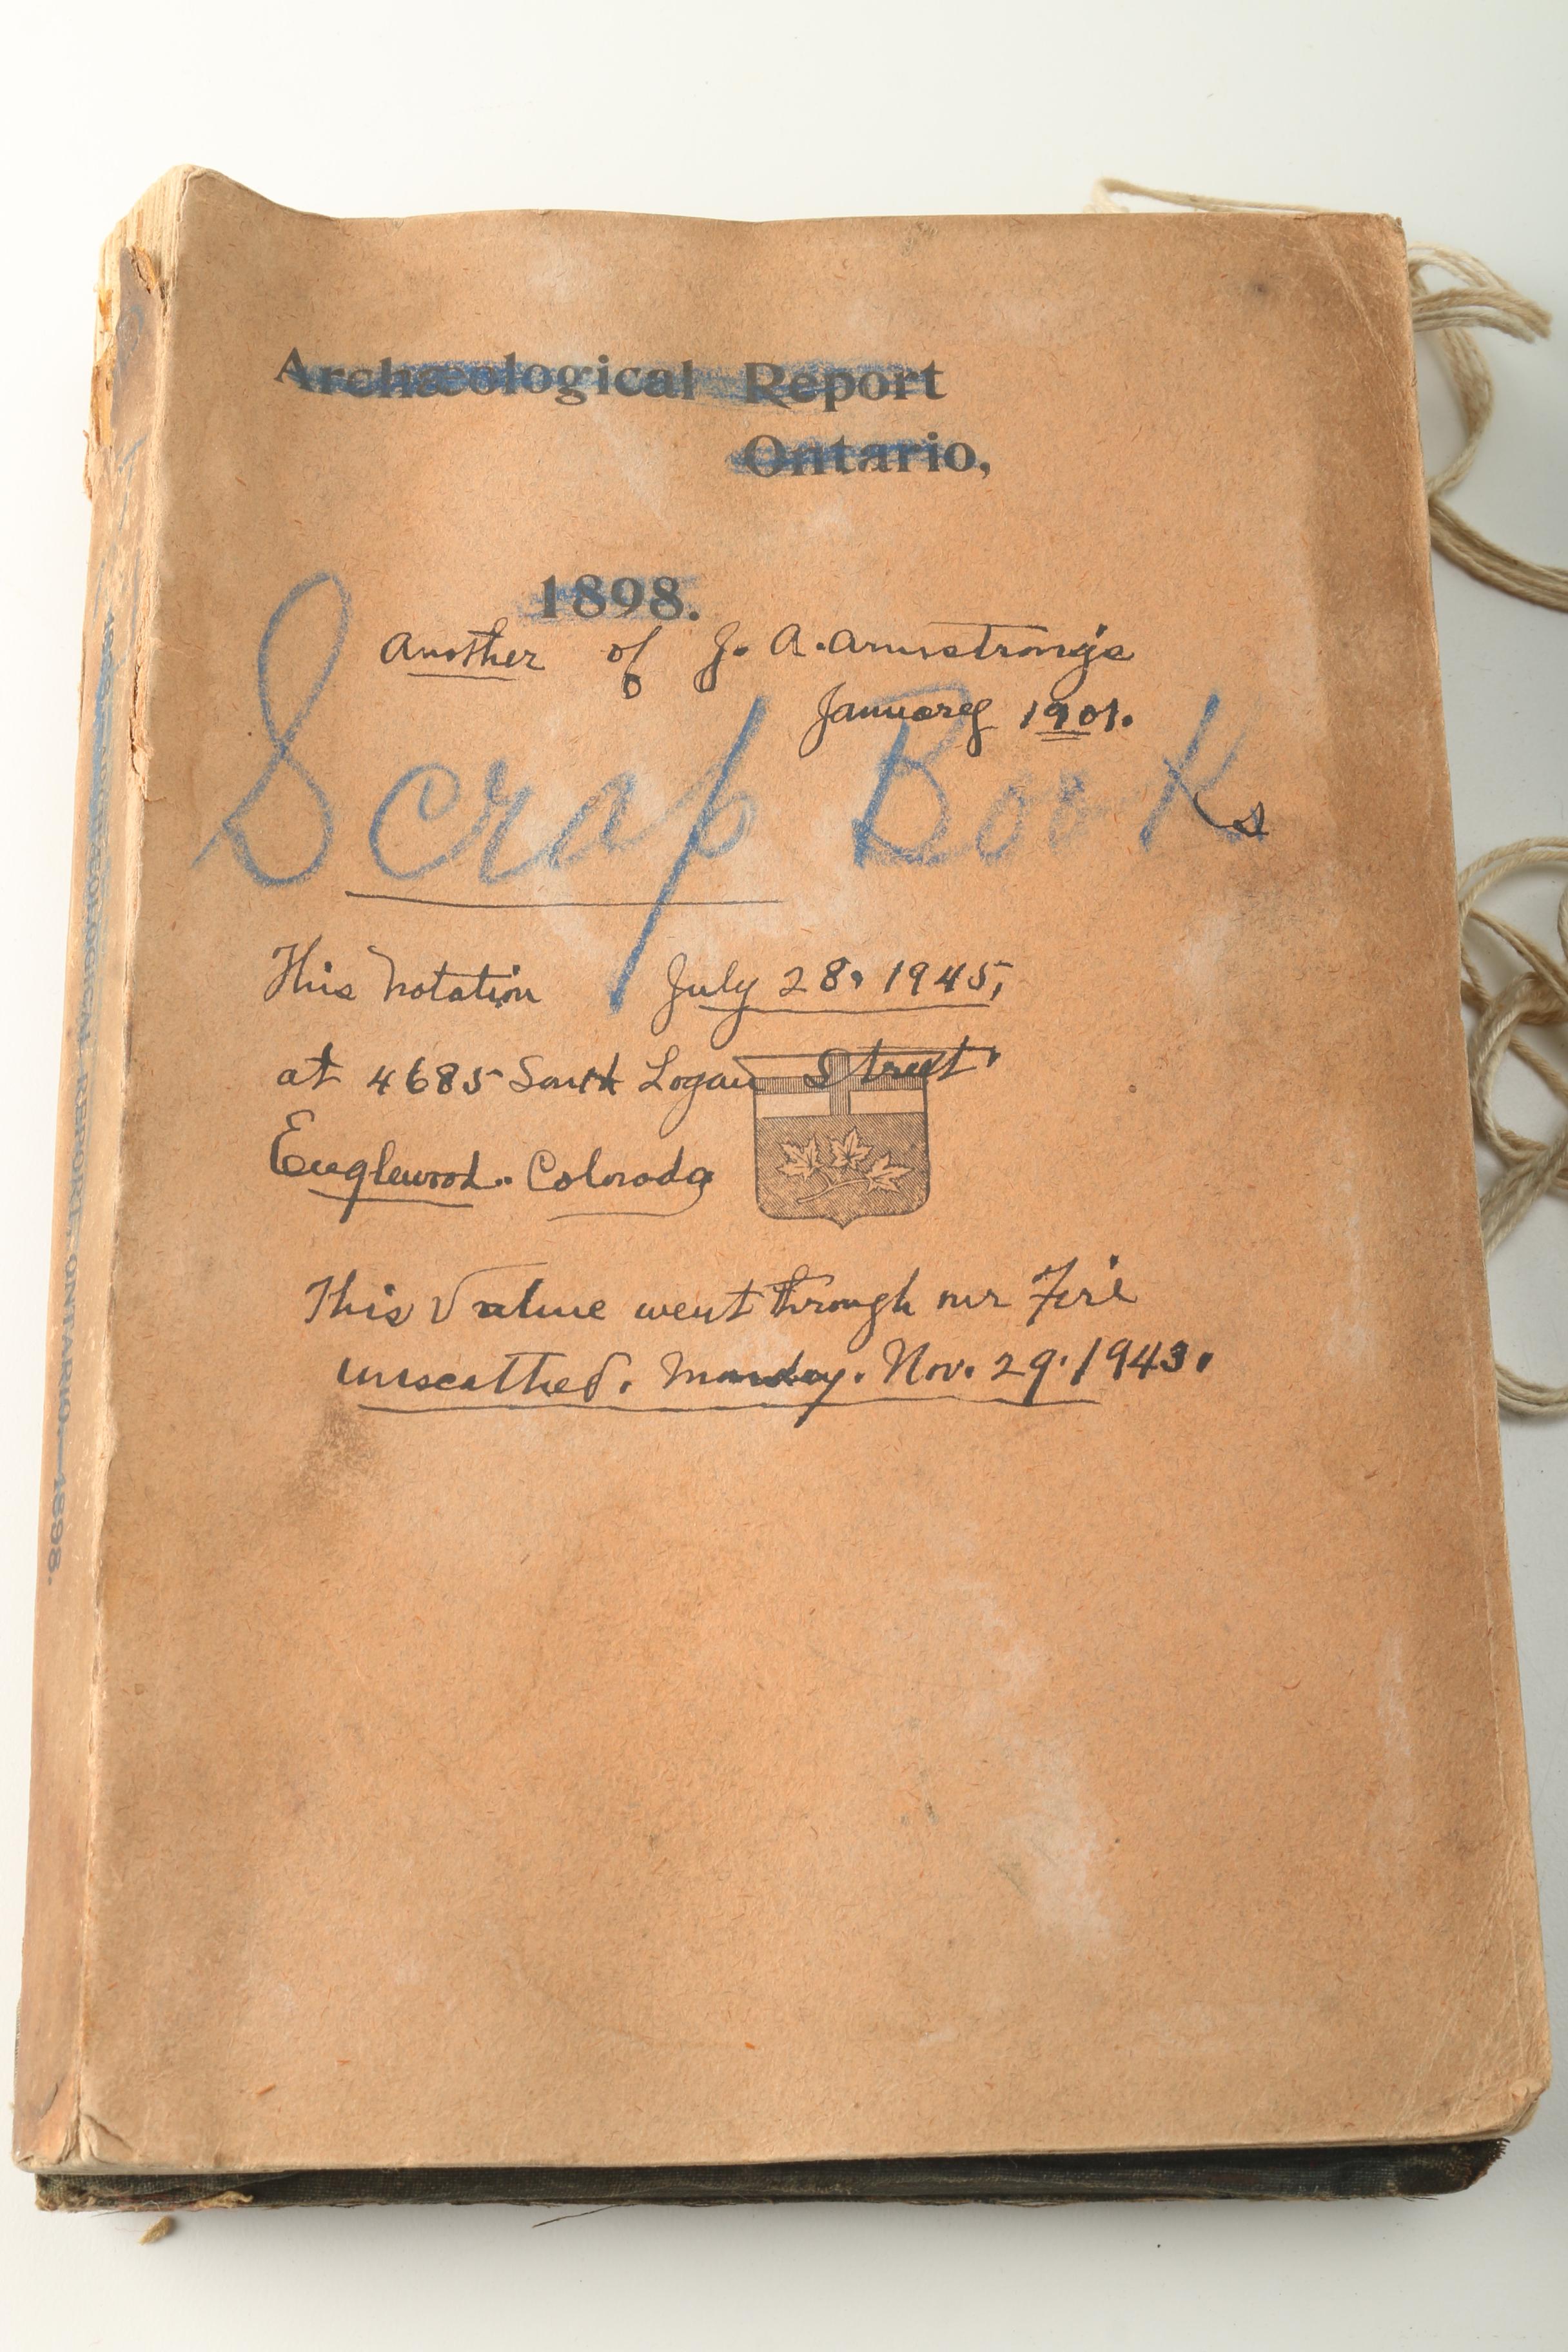 Archæological Report
Ontario,
1898.
Another of J. A. Armstrong's
January 1901.
Scrap Books
This Notation July 28, 1945,
at 4685 South Logan Street
Englewood. Colorado
This Value went through our Fire
unscathed. Monday. Nov. 29. 1943.
ARCHÆOLOGICAL REPORT—ONTARIO—1898.